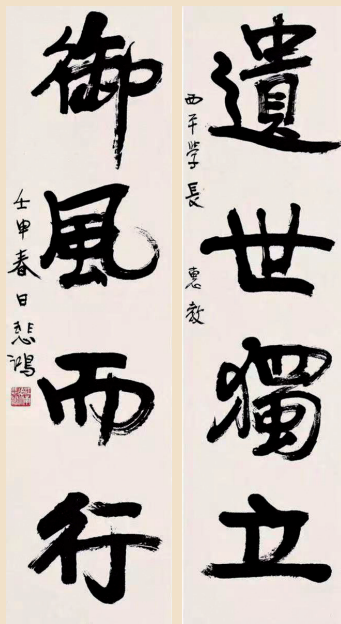 遺世獨立
西平學長 惠教
御風而行
壬申春日悲鴻